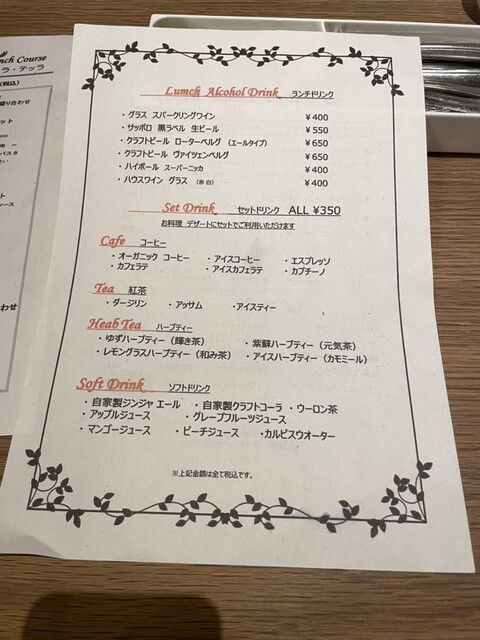 nch Course
ラ・テッラ
(税込)
盛り合わせ
ット
パスタ
ース
わせ
Lumch Alcohol Drink ランチドリンク
・グラス スパークリングワイン ￥400
・サッポロ 黒ラベル 生ビール ￥550
・クラフトビール ローターベルグ（エールタイプ） ￥650
・クラフトビール ヴァイツェンベルグ ￥650
・ハイボール スーパーニッカ ￥400
・ハウスワイン グラス （赤 白） ￥400
Set Drink セットドリンク ALL ¥350
お料理 デザートにセットでご利用いただけます
Cafe コーヒー
・オーガニック コーヒー ・アイスコーヒー ・エスプレッソ
・カフェラテ ・アイスカフェラテ ・カプチーノ
Tea 紅茶
・ダージリン ・アッサム ・アイスティー
Heab Tea ハーブティー
・ゆずハーブティー（輝き茶） ・紫蘇ハーブティー（元気茶）
・レモングラスハーブティー（和み茶） ・アイスハーブティー（カモミール）
Soft Drink ソフトドリンク
・自家製ジンジャ エール ・自家製クラフトコーラ ・ウーロン茶
・アップルジュース ・グレープフルーツジュース
・マンゴージュース ・ピーチジュース ・カルピスウオーター
※上記金額は全て税込です。